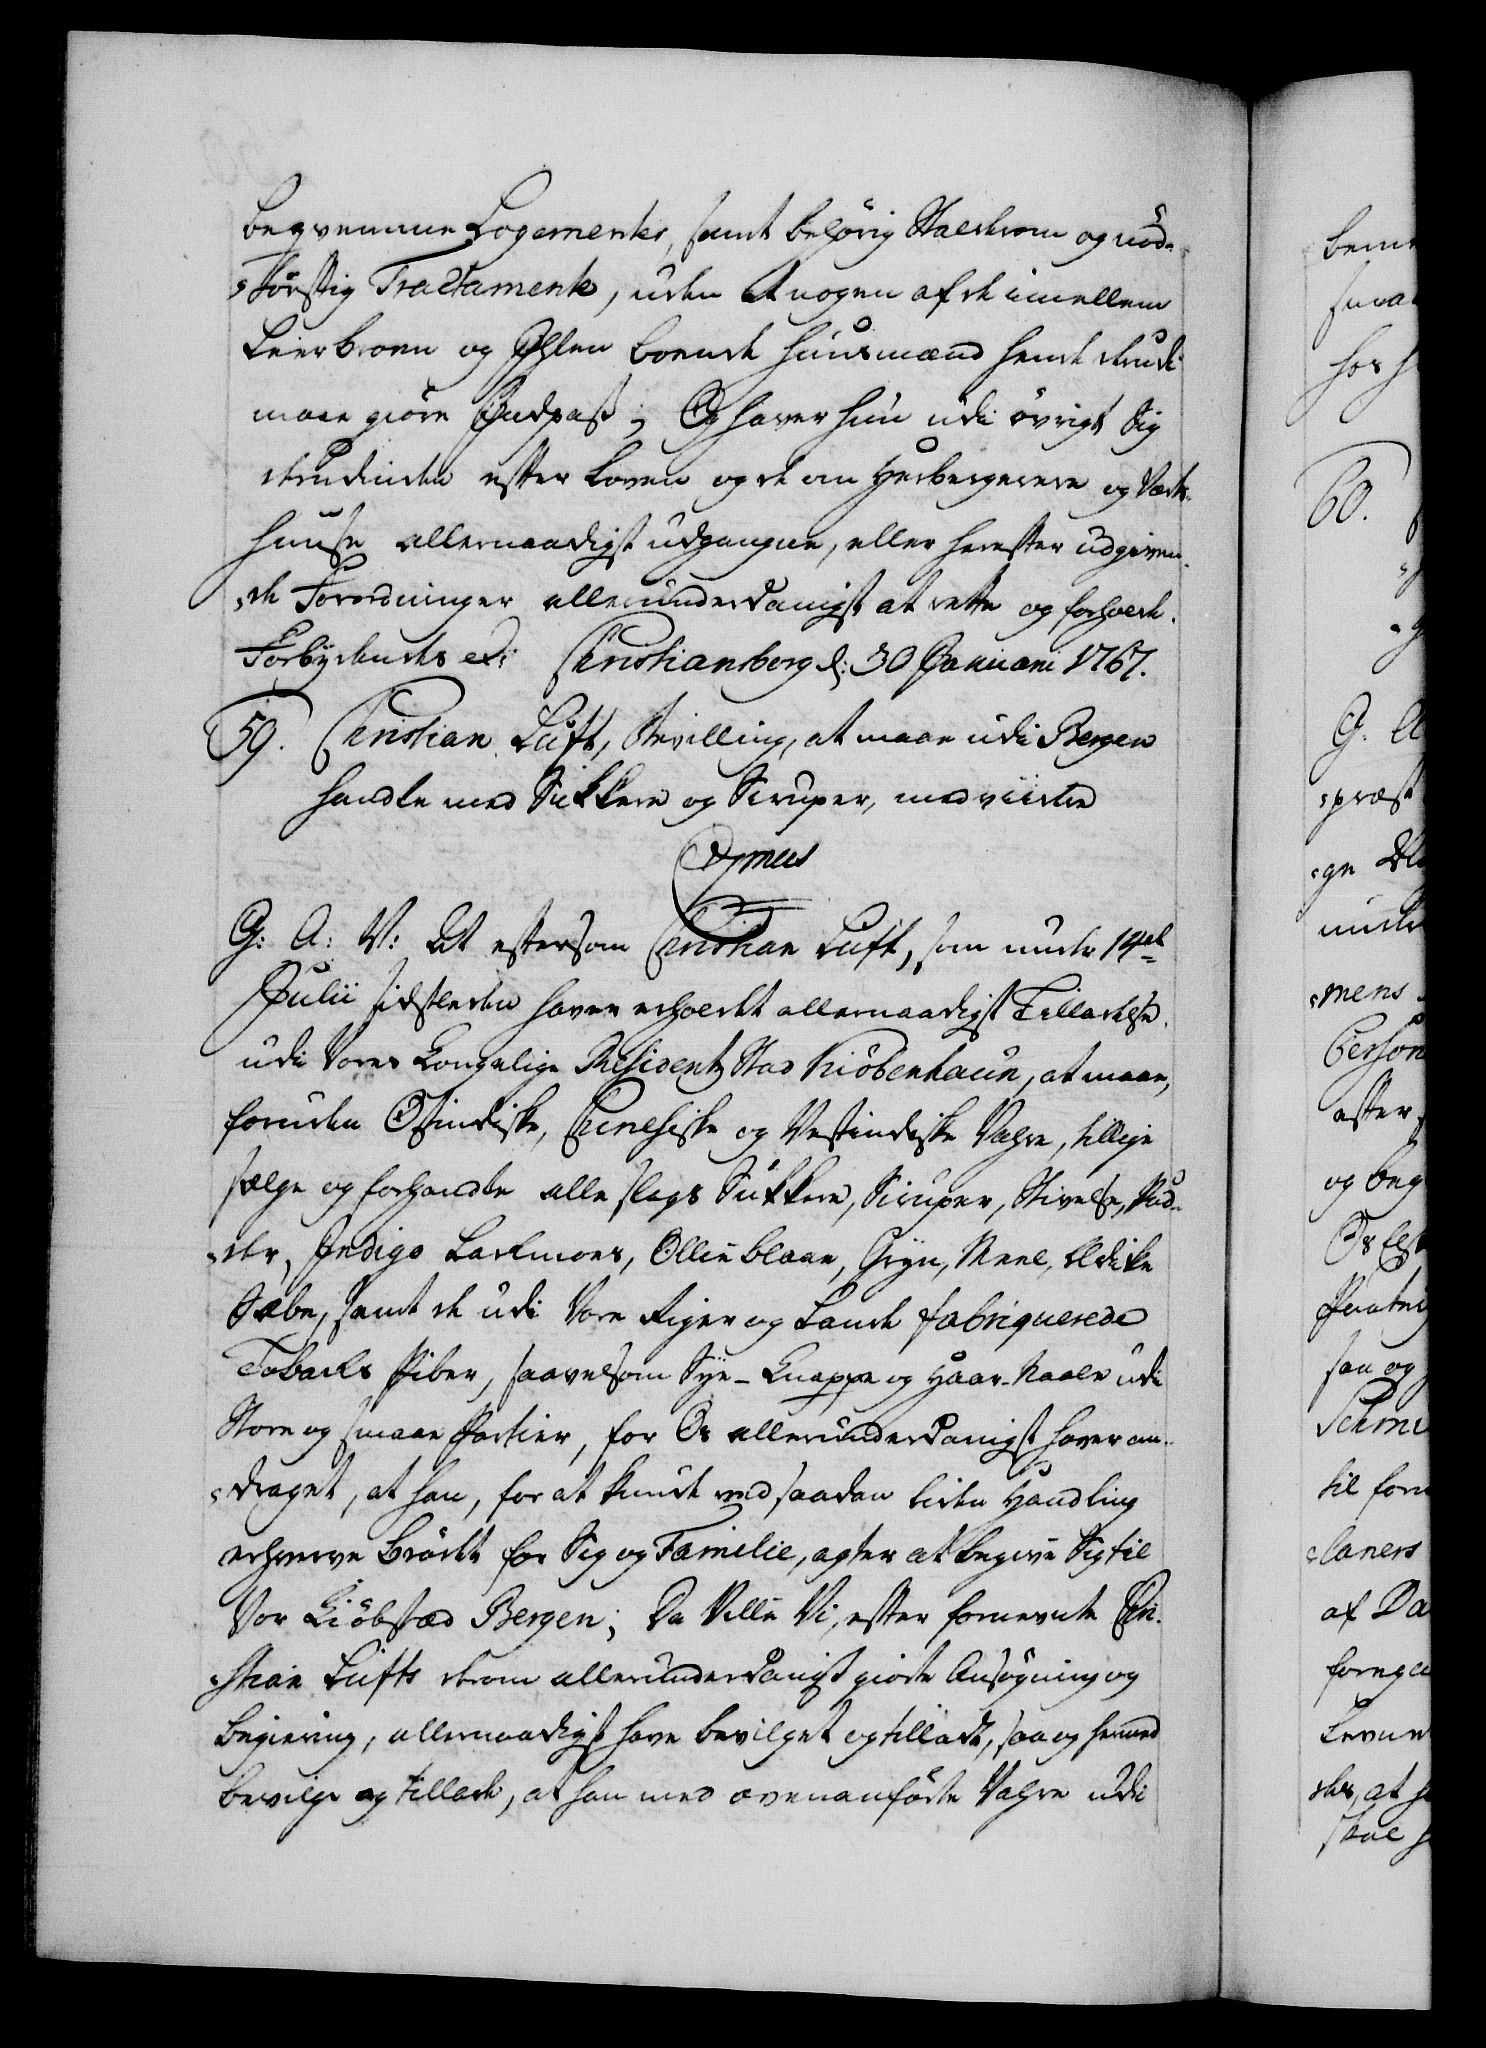 beqvemme Logementer, samt behørig Staldrom og nød-
tørftig Tractamente, uden at nogen af de imellem
Leerbroen og Ohlen boende Huusmænd hende derudi
maae giøre Indpas; Og haver hun udi øvrigt sig
derudinden efter Loven og de om Herbergerere og Værts-
huuse allernaadigst udgangne, eller herefter udgiven-
de Forordninger allerunderdanigst at rette og forholde.
Forbydendes etc: Christiansborg d: 30 Januarii 1767.
59. Christian Luft, Bevilling, at maae udi Bergen
handle med Sukkere og Siruper, med viidere
G: A: V: At eftersom Christian Luft, som under 14de
Julii sidstleden haver erholdet allernaadigst Tilladelse
udi Vores Kongelige Residentz Stad Kiöbenhaun, at maae,
foruden Ostindiske, Chinesiske og Vestindiske Vahre, tillige
sælge og forhandle alle slags Sukkere, Siruper, Stivelse, Pud-
der, Indigo Lackmoes, Ollie blaae, Gryn, Meel, Eddike
Sæbe, samt de udi Vore Riger og Lande fabriquerede
Tobacks Piber, saavelsom Sye- Knappe og Haar-Naale udi
Store og smaae Partier, for Os allerunderdanigst haver an-
draget, at han, for at kunde ved saadan liden Handling
erhverve Brödet for Sig og Familie, agter at begive Sig til
Vor Kiöbstæd Bergen; Da Ville Vi, efter fornevnte Chri-
stian Lufts derom allerunderdanigst giorte Ansøgning og
Begiering, allernaadigst have bevilget og tilladt, saa og hermed
bevilge og tillade, at han med ovenanførte Vahre udi